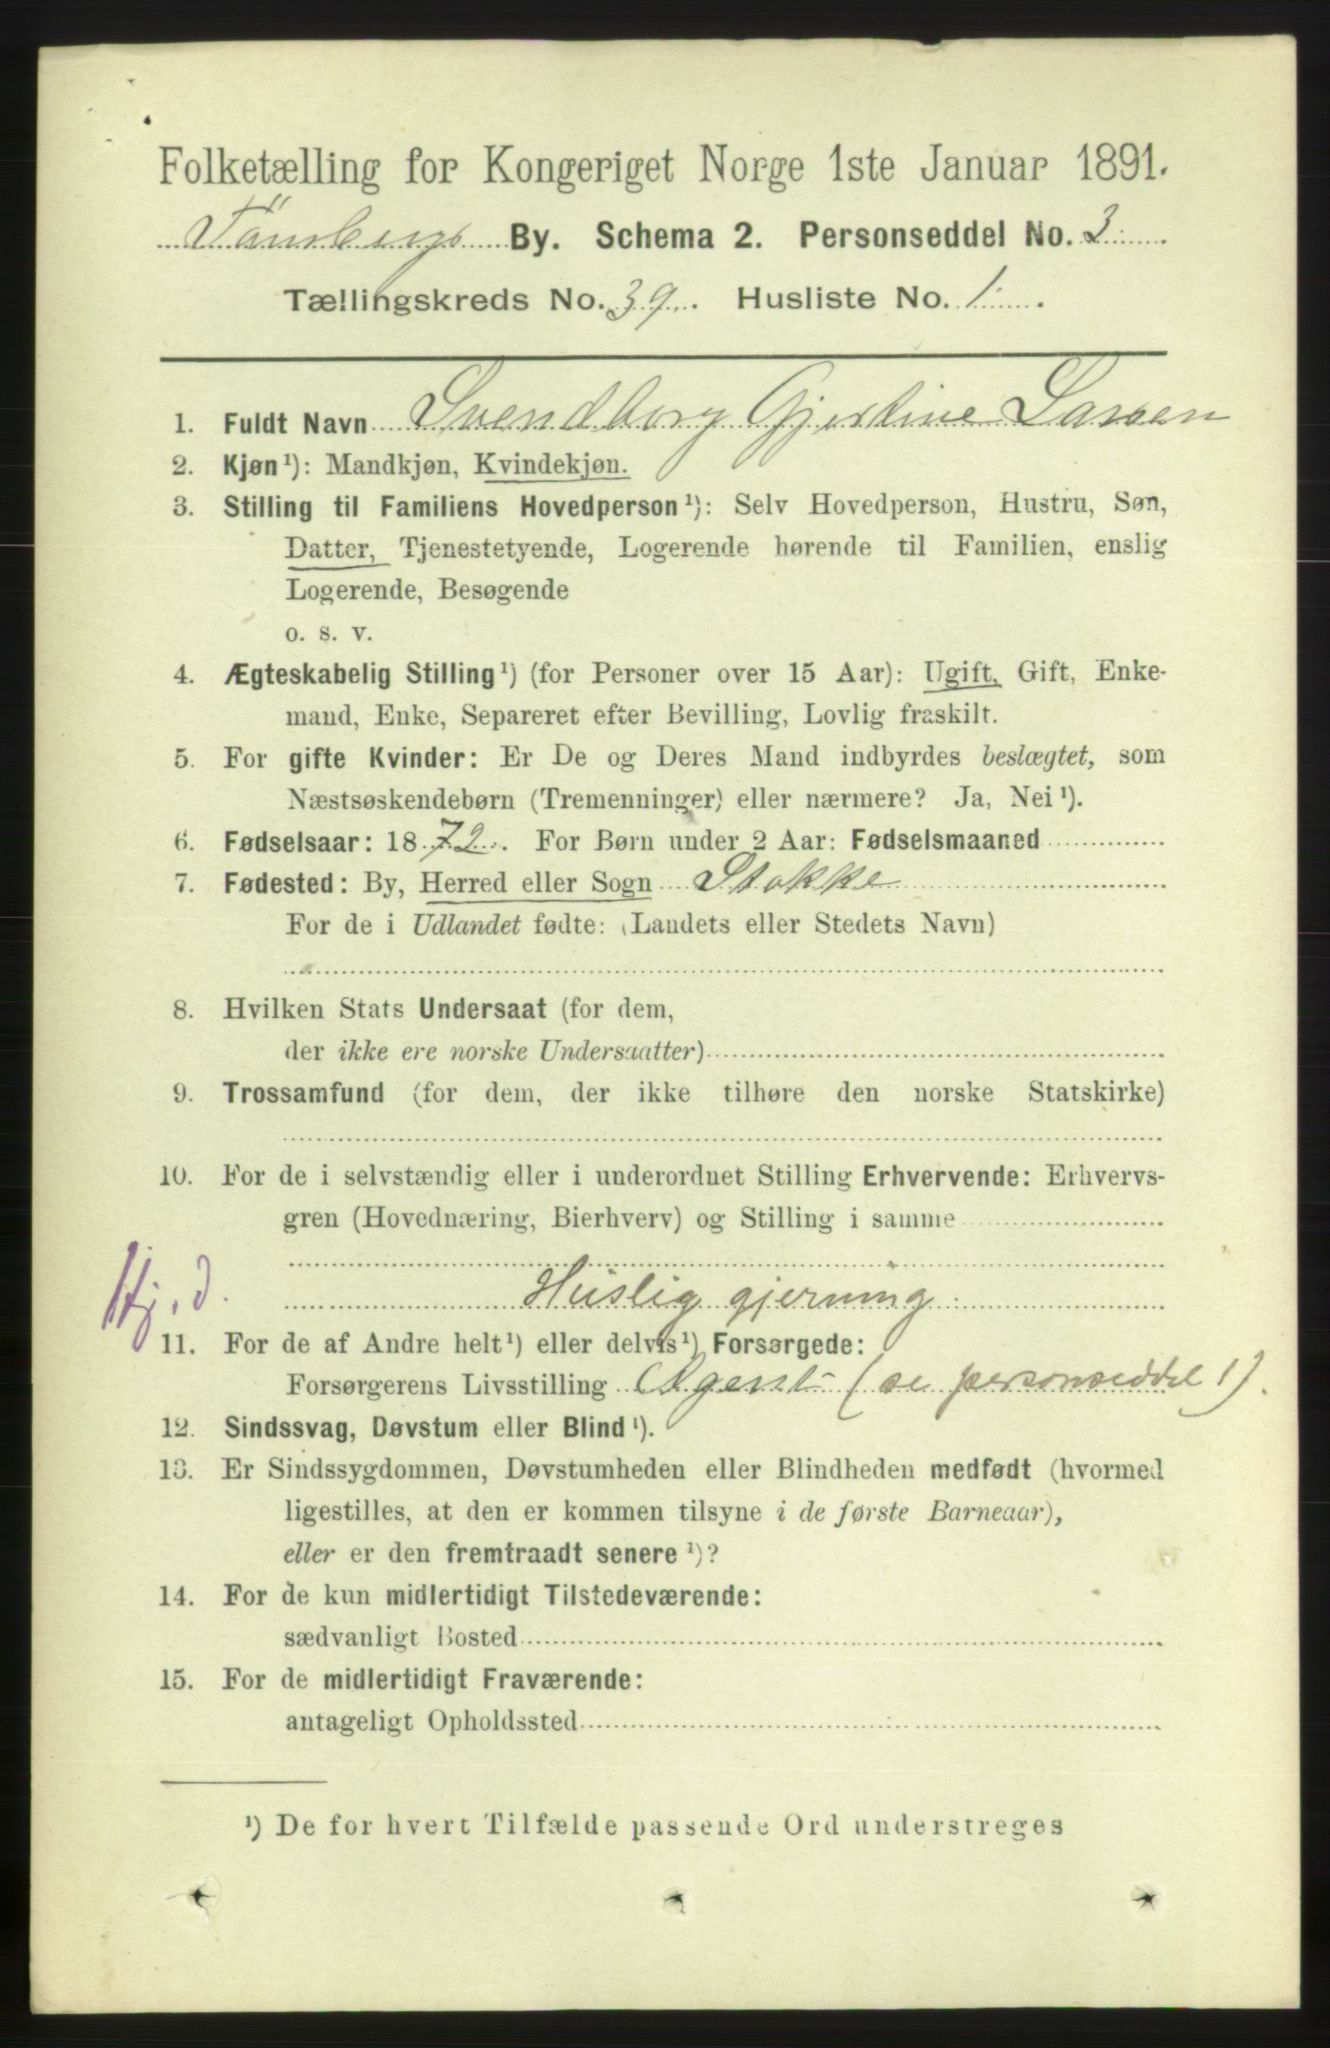 Folketælling for Kongeriget Norge 1ste Januar 1891.
Tönsbergs By. Schema 2. Personseddel No. 3
Tællingskreds No. 39. Husliste No. 1.
1. Fuldt Navn Svendborg Gjertine Larsen
2. Kjøn¹): Mandkjøn, Kvindekjøn.
3. Stilling til Familiens Hovedperson¹): Selv Hovedperson, Hustru, Søn,
Datter, Tjenestetyende, Logerende hørende til Familien, enslig
Logerende, Besøgende
o. s. v.
4. Ægteskabelig Stilling¹) (for Personer over 15 Aar): Ugift, Gift, Enke-
mand, Enke, Separeret efter Bevilling, Lovlig fraskilt.
5. For gifte Kvinder: Er De og Deres Mand indbyrdes beslægtet, som
Næstsøskendebørn (Tremenninger) eller nærmere? Ja, Nei¹).
6. Fødselsaar: 1872. For Børn under 2 Aar: Fødselsmaaned
7. Fødested: By, Herred eller Sogn Stokke
For de i Udlandet fødte: (Landets eller Stedets Navn)
8. Hvilken Stats Undersaat (for dem,
der ikke ere norske Undersaatter)
9. Trossamfund (for dem, der ikke tilhøre den norske Statskirke)
10. For de i selvstændig eller i underordnet Stilling Erhvervende: Erhvervs-
gren (Hovednæring, Bierhverv) og Stilling i samme
Hj. d. Huslig gjerning.
11. For de af Andre helt¹) eller delvis¹) Forsørgede:
Forsørgerens Livsstilling Agent (se personseddel 1).
12. Sindssvag, Døvstum eller Blind¹).
13. Er Sindssygdommen, Døvstumheden eller Blindheden medfødt (hvormed
ligestilles, at den er kommen tilsyne i de første Barneaar),
eller er den fremtraadt senere¹)?
14. For de kun midlertidigt Tilstedeværende:
sædvanligt Bosted
15. For de midlertidigt Fraværende:
antageligt Opholdssted
¹) De for hvert Tilfælde passende Ord understreges